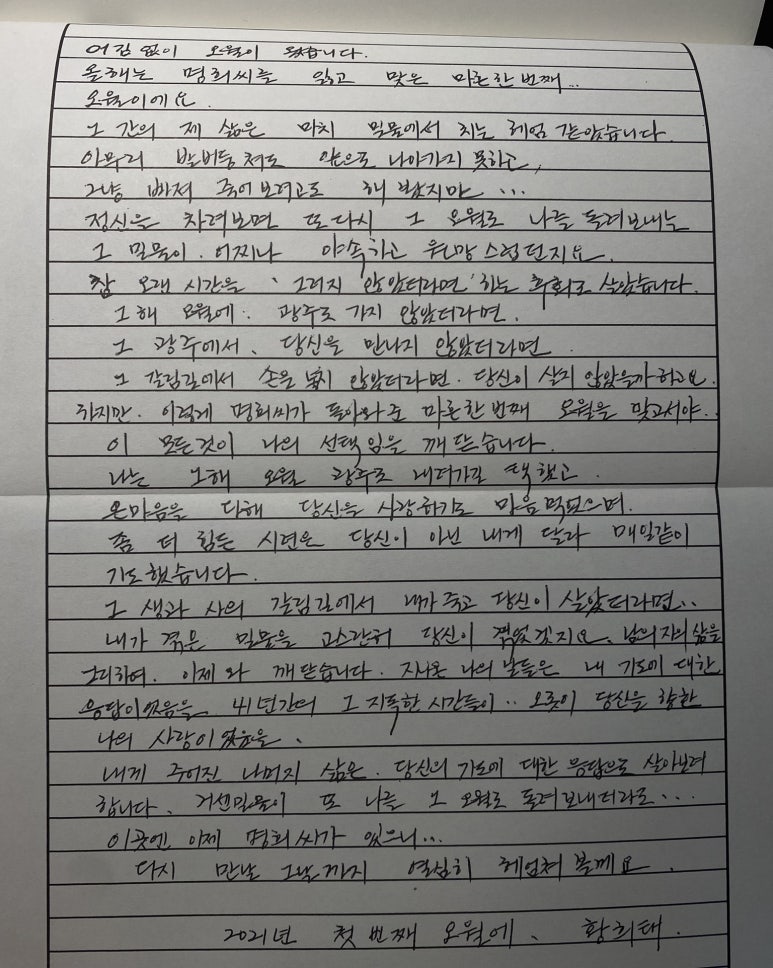 어김 없이 오월이 왔습니다.
올해는 명희씨를 잃고 맞은 마흔한 번째..
오월이에요.
그 간의 제 삶은 마치 밀물에서 치는 헤엄 같았습니다.
아무리 발버둥 쳐도 앞으로 나아가지 못하고,
그냥 빠져 죽어보려고도 해 봤지만 ...
정신을 차려보면 또 다시 그 오월로 나를 돌려보내는
그 밀물이. 어찌나 야속하고 원망 스럽던지요.
참 오랜 시간을 '그러지 않았더라면' 하는 후회로 살았습니다.
그해 오월에. 광주로 가지 않았더라면.
그 광주에서. 당신을 만나지 않았더라면.
그 갈림길에서 손을 놓지 않았더라면. 당신이 살지 않았을까 하고요.
하지만. 이렇게 명희씨가 돌아와 준 마흔한 번째 오월을 맞고서야..
이 모든것이 나의 선택임을 깨닫습니다.
나는 그해 오월 광주로 내려가길 택했고.
온마음을 다해 당신을 사랑하기로 마음먹었으며.
좀 더 힘든 시련은 당신이 아닌 내게 달라 매일같이
기도했습니다.
그 생과 사의 갈림길에서 내가 죽고 당신이 살았더라면..
내가 겪은 밀물을 고스란히 당신이 겪었겠지요. 남은자의 삶을
그리하여. 이제와 깨닫습니다. 지나온 나의 날들은 내 기도에 대한
응답이었음을. 41년간의 그 지독한 시간들이.. 오롯이 당신을 향한
나의 사랑이었음을.
내게 주어진 나머지 삶은. 당신의 기도에 대한 응답으로 살아보려
합니다. 거센밀물이 또 나를 그 오월로 돌려보내더라도...
이곳엔 이제 명희씨가 있으니...
다시 만날 그날까지 열심히 헤엄쳐 볼께요.
2021년 첫 번째 오월에. 황희태.